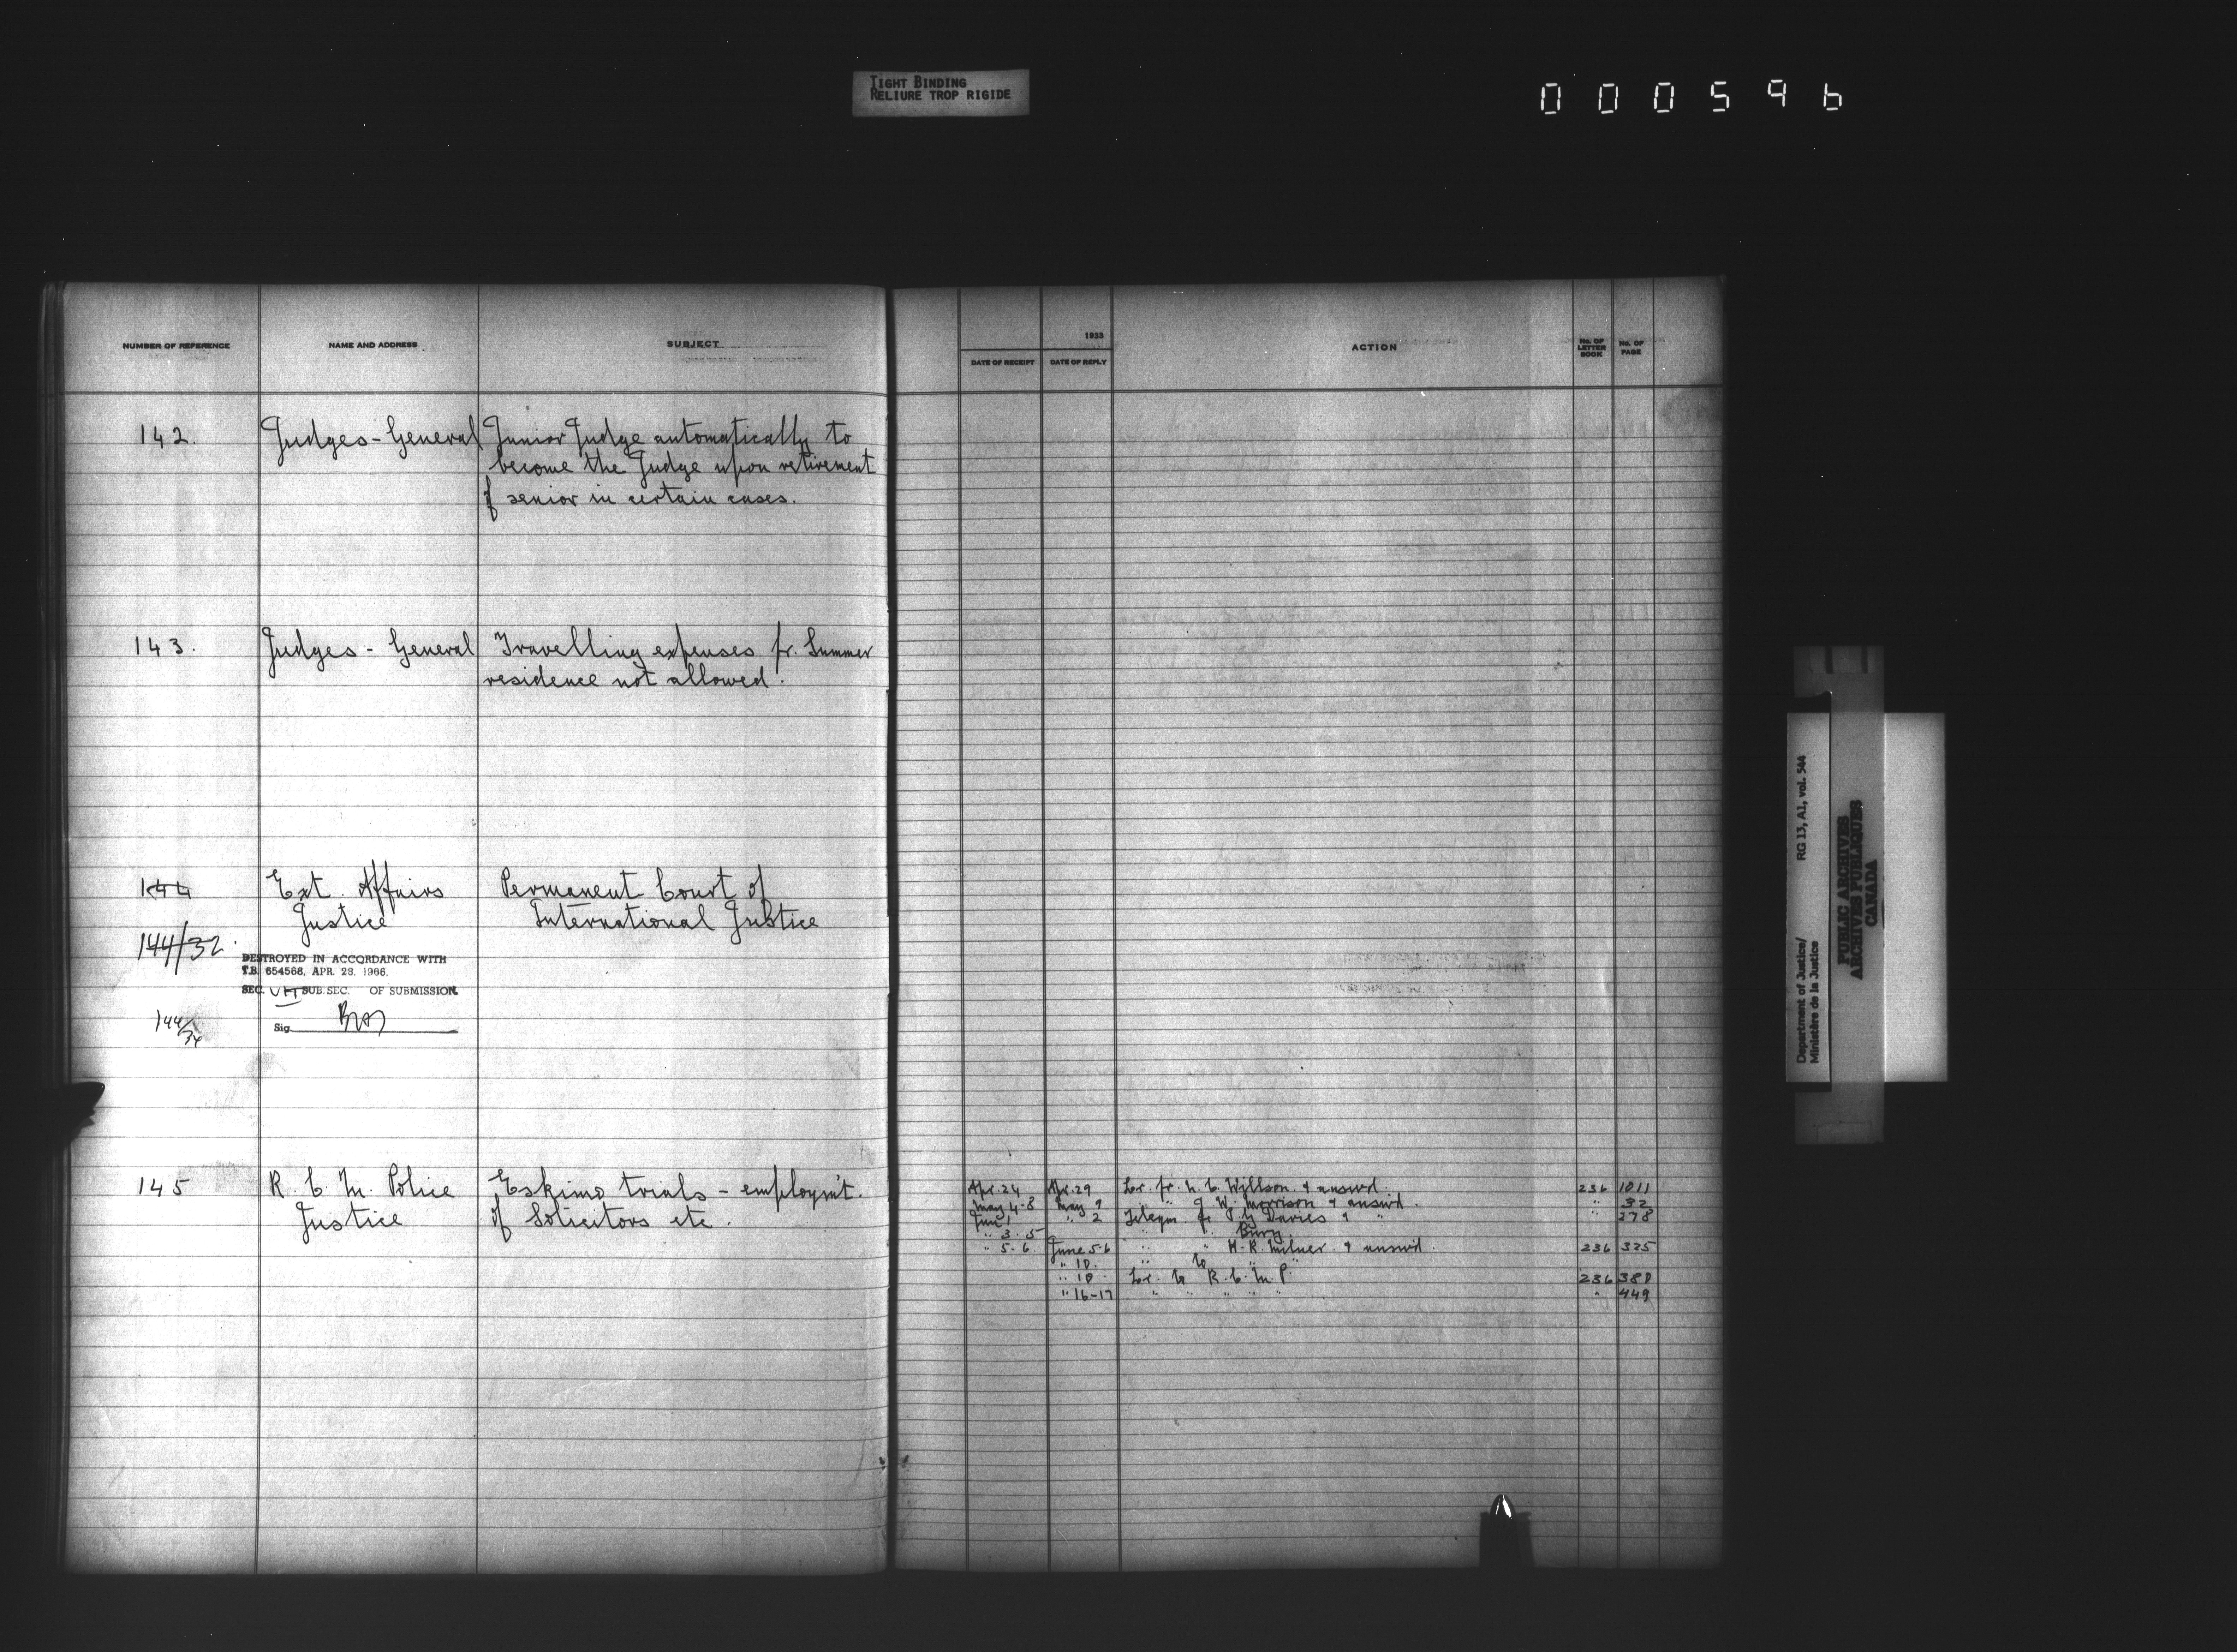 TIGHT BINDING
RELIURE TROP RIGIDE
000596
NUMBER OF REFERENCE NAME AND ADDRESS SUBJECT
142. Judges - General Junior Judge automatically to
become the Judge upon retirement
of senior in certain cases.
143. Judges - General Travelling expenses fr. Summer
residence not allowed.
144 Ext. Affairs Permanent Court of
Justice International Justice
144/32.
DESTROYED IN ACCORDANCE WITH
T.B. 654568, APR. 28. 1966.
SEC. VII SUB. SEC. OF SUBMISSION.
144/34
Sig.
145 R. C. M. Police Eskimo trials - employm't.
Justice of Solicitors etc.
1933
DATE OF RECEIPT DATE OF REPLY ACTION No. OF LETTER BOOK No. OF PAGE
Apr. 24 Apr. 29 Lr. fr. N. C. Willson & answd. 236 1011
May 4-8 May 9 " " J. W. Morrison & answd. " 32
Jun 1 " 2 Telegm fr. Davies & " " 278
" 3. 5 " " Bury.
" 5-6 June 5-6 " " H. R. Milner & answd. 236 325
" 10. " to " "
" 10 Lr. to R. C. M. P. 236 380
" 16-17 " " " " " " 449
Department of Justice/ RG 13, A1, vol. 544
Ministère de la Justice
PUBLIC ARCHIVES
ARCHIVES PUBLIQUES
CANADA